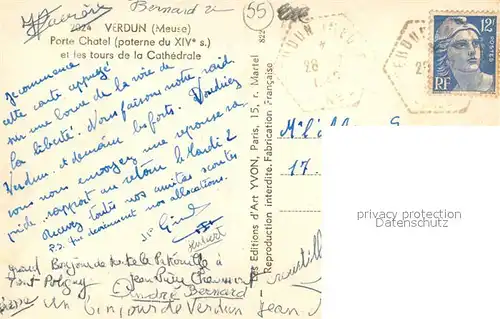 Bernard
55
2024 VERDUN (Meuse)
Porte Chatel (poterne du XIVe s.)
et les tours de la Cathédrale
Je commence
cette carte appuyé
sur une borne de la voie de
la liberté. Nous faisons notre raid
Verdun et demain les forts. Voudriez
vous nous envoyer une réponse ra-
pide, rapport au retour le Mardi 2
Recevez toutes nos amitiés scoutes
P.S. qui reviennent nos allocations.
Bonjour de toute la Patrouille à
Jean Pierre
André Bernard
un bonjour de Verdun Jean
Les Editions d'Art YVON, Paris, 15, r. Martel
Reproduction interdite. Fabrication Française
822
VERDUN
28
12F
POSTES
RF
M
17.
privacy protection
Datenschutz